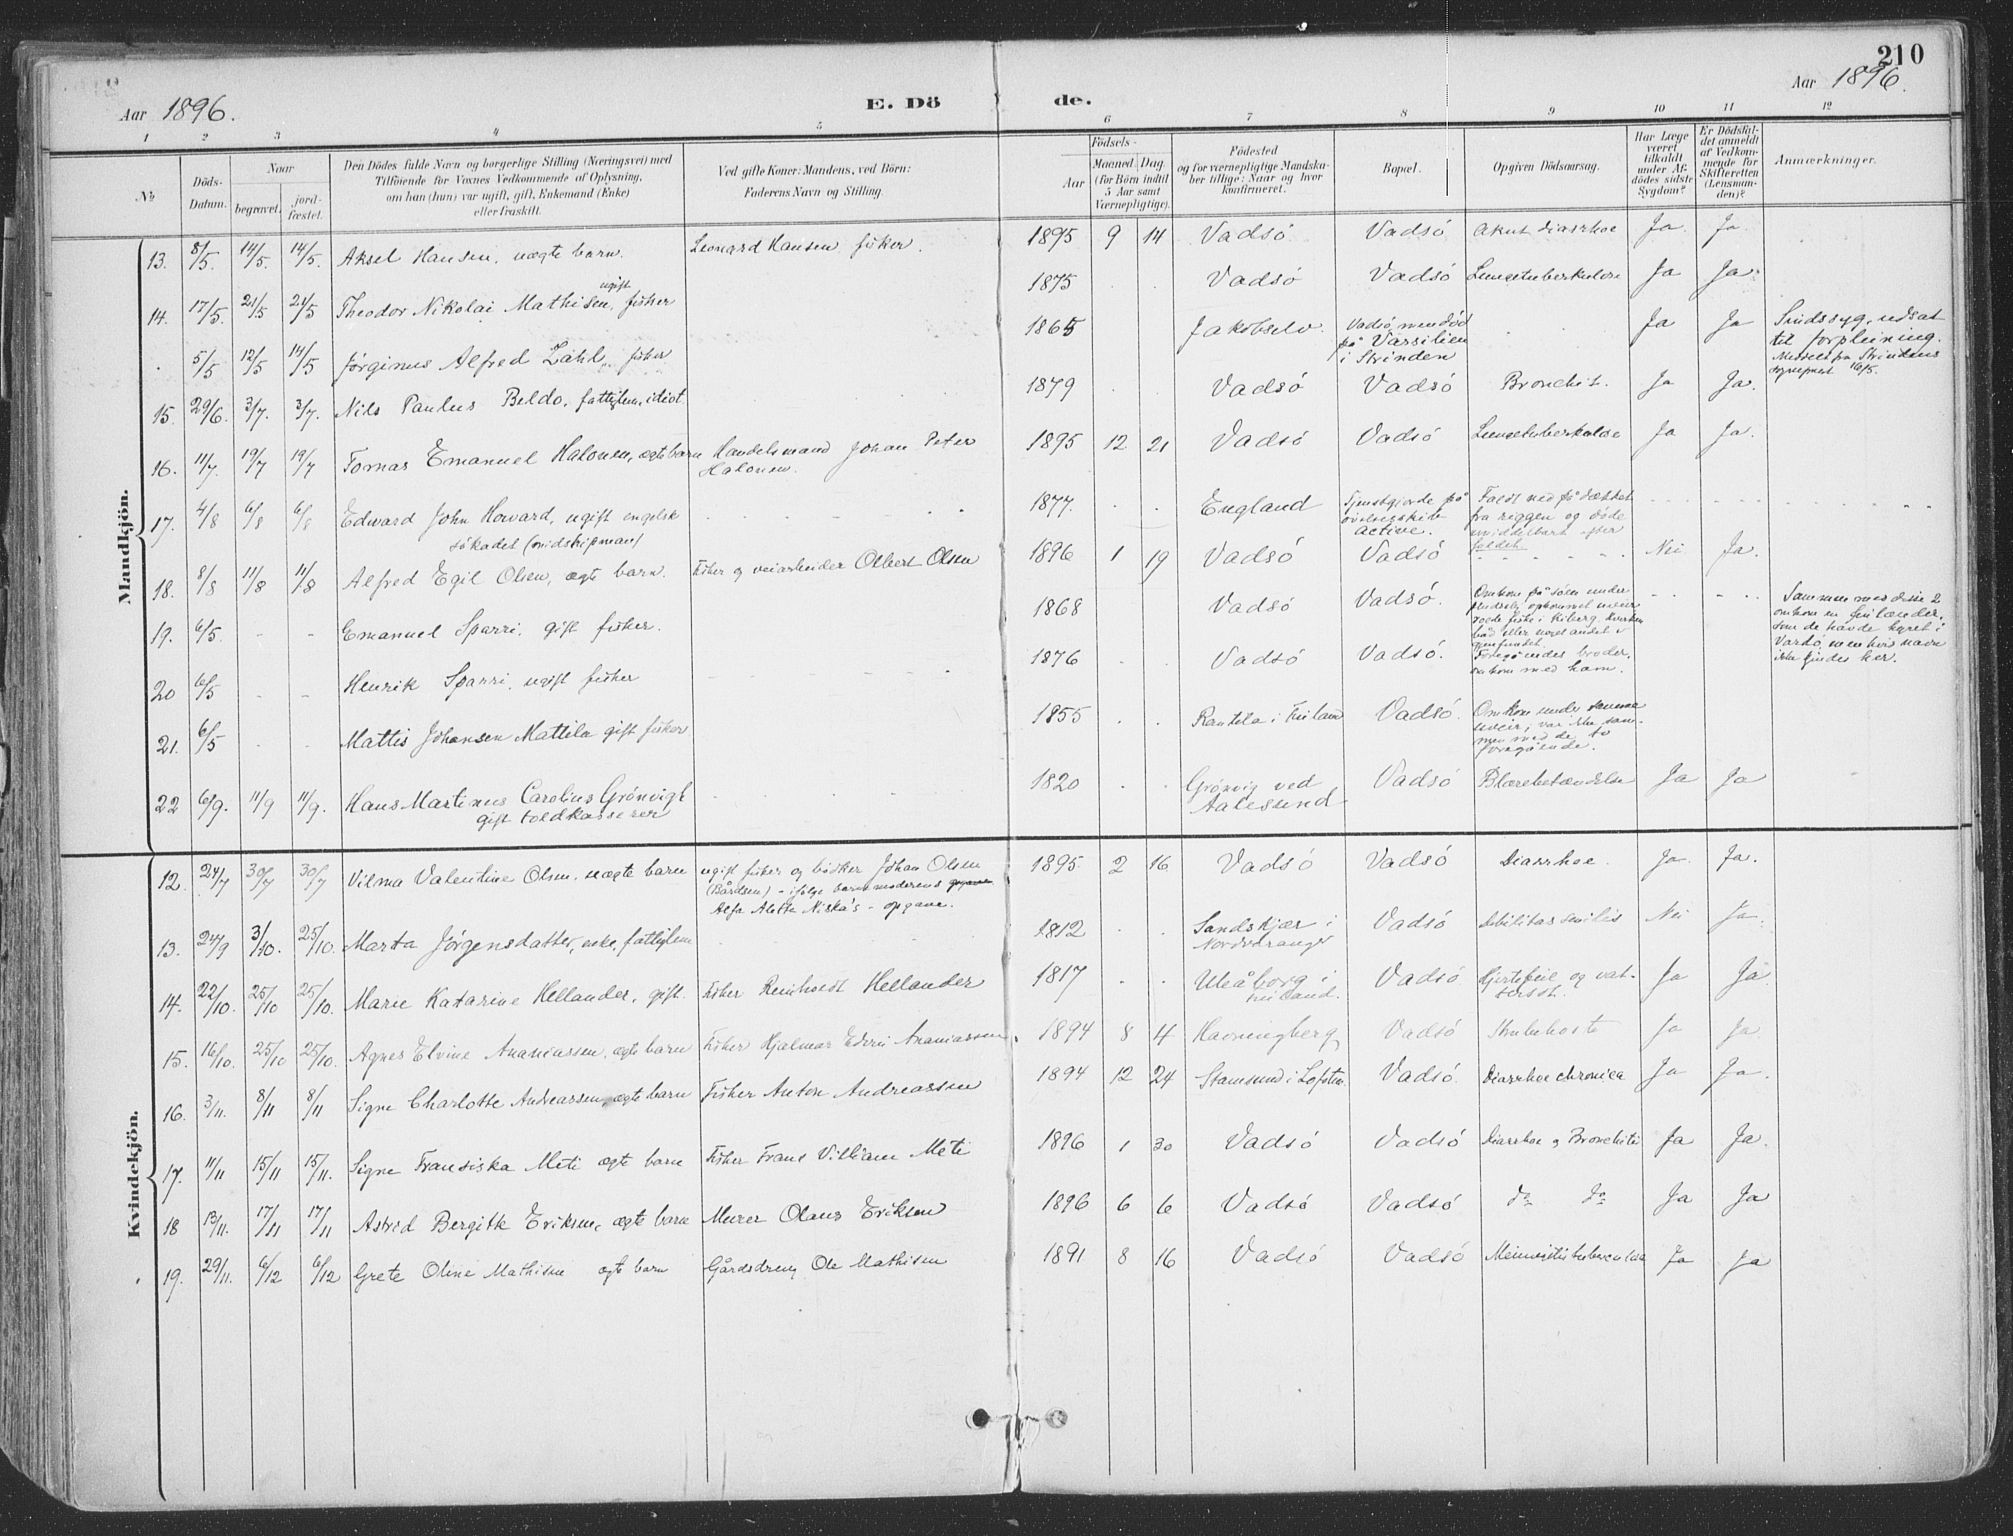 210
Aar 1896.
E. Dö de.
Aar 1896.
1 2 3 4 5 6 7 8 9 10 11 12
№
Döds-Datum.
Naar
begravet.
jord-fæstet.
Den Dödes fulde Navn og borgerlige Stilling (Næringsvei) med
Tilföiende for Voxnes Vedkommende af Oplysning,
om han (hun) var ugift, gift, Enkemand (Enke)
eller fraskilt.
Ved gifte Koner: Mandens, ved Börn:
Faderens Navn og Stilling.
Födsels-
Aar
Maaned. Dag.
(for Börn indtil
5 Aar samt
Værnepligtige).
Födested
og for værnepligtige Mandska-
ber tillige: Naar og hvor
konfirmeret.
Bopæl.
Opgiven Dödsaarsag.
Har Læge
været
tilkaldt
under Af-
dödes sidste
Sygdom?
Er Dödsfal-
det anmeldt
af Vedkom-
mende for
Skifteretten
(Lensman-
den)?
Anmærkninger.
Mandkjön.
13. 8/5. 14/5. 14/5. Aksel Hansen, uægte barn. Leonard Hansen fisker. 1895 9 14 Vadsö Vadsö akut diarrhoe Ja Ja.
ugift
14. 17/5. 21/5 21/5 Theodor Nikolai Mathisen, fisker 1875 Vadsö Vadsö Lungetuberkulose Ja Ja.
5/5 12/5 14/5 Jörginus Alfred Zahl, fisker 1865 Jakobselv. Vadsö, men död
på Vassilien
i Strinden
Ja Ja Sindssyg, udsat
til forpleining.
Meddelt fra Strindens
sogneprest 16/5.
15. 29/6. 3/7. 3/7. Nils Paulus Beldo, fattiglem, idiot 1879 Vadsö Vadsö Bronchit. Ja Ja.
16. 11/7. 19/7 19/7 Tomas Emanuel Halonen, ægte barn Handelsmand Johan Peter
Halonen.
1895 12 21 Vadsö Vadsö Lungetuberkulose Ja Ja.
17. 4/8 6/8 6/8 Edward John Howard, ugift engelsk
sökadet (midshipman)
1877. England Tjenstgjorde på
övelsesskib
Active.
Faldt ned på dækket
fra riggen og döde
umiddelbart efter
faldet
18. 8/8 11/8 11/8 Alfred Egil Olsen, ægte barn. Fisker og veiarbeider Olbert Olsen 1896 1 19 Vadsö Vadsö Nei Ja.
19. 6/5. Emanuel Sparri, gift fisker. 1868 Vadsö Vadsö. Omkom på söen under
pludselig opkommet uveir
under fiske i Kiberg. Hverken
båd eller noget andet er
gjenfundet.
Sammen med disse 2
omkom en finlænder,
som de havde hyret i
Vardö, men hvis navn
ikke findes her.
20 6/5 Henrik Sparri, ugift fisker 1876 Vadsö Vadsö. Foregåendes broder,
omkom med ham.
21. 6/5 Mattis Johansen Mattila gift fisker 1855 Rantila i Finland Vadsö. Omkom under samme
uveir; var ikke sam-
men med de to
foregående.
22 6/9. 11/9 11/9. Hans Martinus Carolius Grönvigh
gift toldkasserer
1820 Grönvig ved
Aalesund
Vadsö Blærebetændelse Ja Ja
Kvindekjön.
12. 24/7 30/7 30/7 Vilma Valentine Olsen, uægte barn ugift fisker og bödker Johan Olsen
(Bårdsen) - ifölge barnemoderens
Alfa Aletta Niska's - opgave.
1895. 2 16 Vadsö Vadsö Diarrhoe. Ja Ja.
13. 24/9 3/10. 25/10. Marta Jörgensdatter, enke, fattiglem 1812 Sandskjær i
Nordvaranger
Vadsö debilitas senilis Nei Ja.
14. 22/10. 25/10 25/10. Marie Katarine Hellander, gift. Fisker Reinholdt Hellander 1817 Uleåborg i
Finland.
Vadsö Hjertefeil og vat-
tersot.
Ja Ja
15. 16/10. 25/10 25/10. Agnes Elvine Ananiassen, ægte barn Fisker Hjalmar Edvin Ananiassen. 1894 8 4 Havningberg Vadsö Strubehoste Ja Ja.
16. 3/11. 8/11 8/11 Signe Charlotte Andreassen, ægte barn Fisker Anton Andreassen 1894 12 24 Stamsund i Lofoten. Vadsö. Diarrhoe chronica Ja Ja.
17. 11/11 15/11 15/11. Signe Fransiska Meti ægte barn Fisker Frans Villiam Meti 1896 1 30 Vadsö Vadsö Diarrhoe og Bronchitis Ja Ja.
18 13/11. 17/11 17/11 Astrid Bergitte Eriksen, ægte barn Murer Olaus Eriksen 1896 6 6 Vadsö Vadsö do do Ja Ja
19. 29/11. 6/12 6/12 Grete Oline Mathisen ægte barn Gårdsdreng Ole Mathisen 1891 8 16 Vadsö Vadsö Meningitis tuberculosa Ja Ja